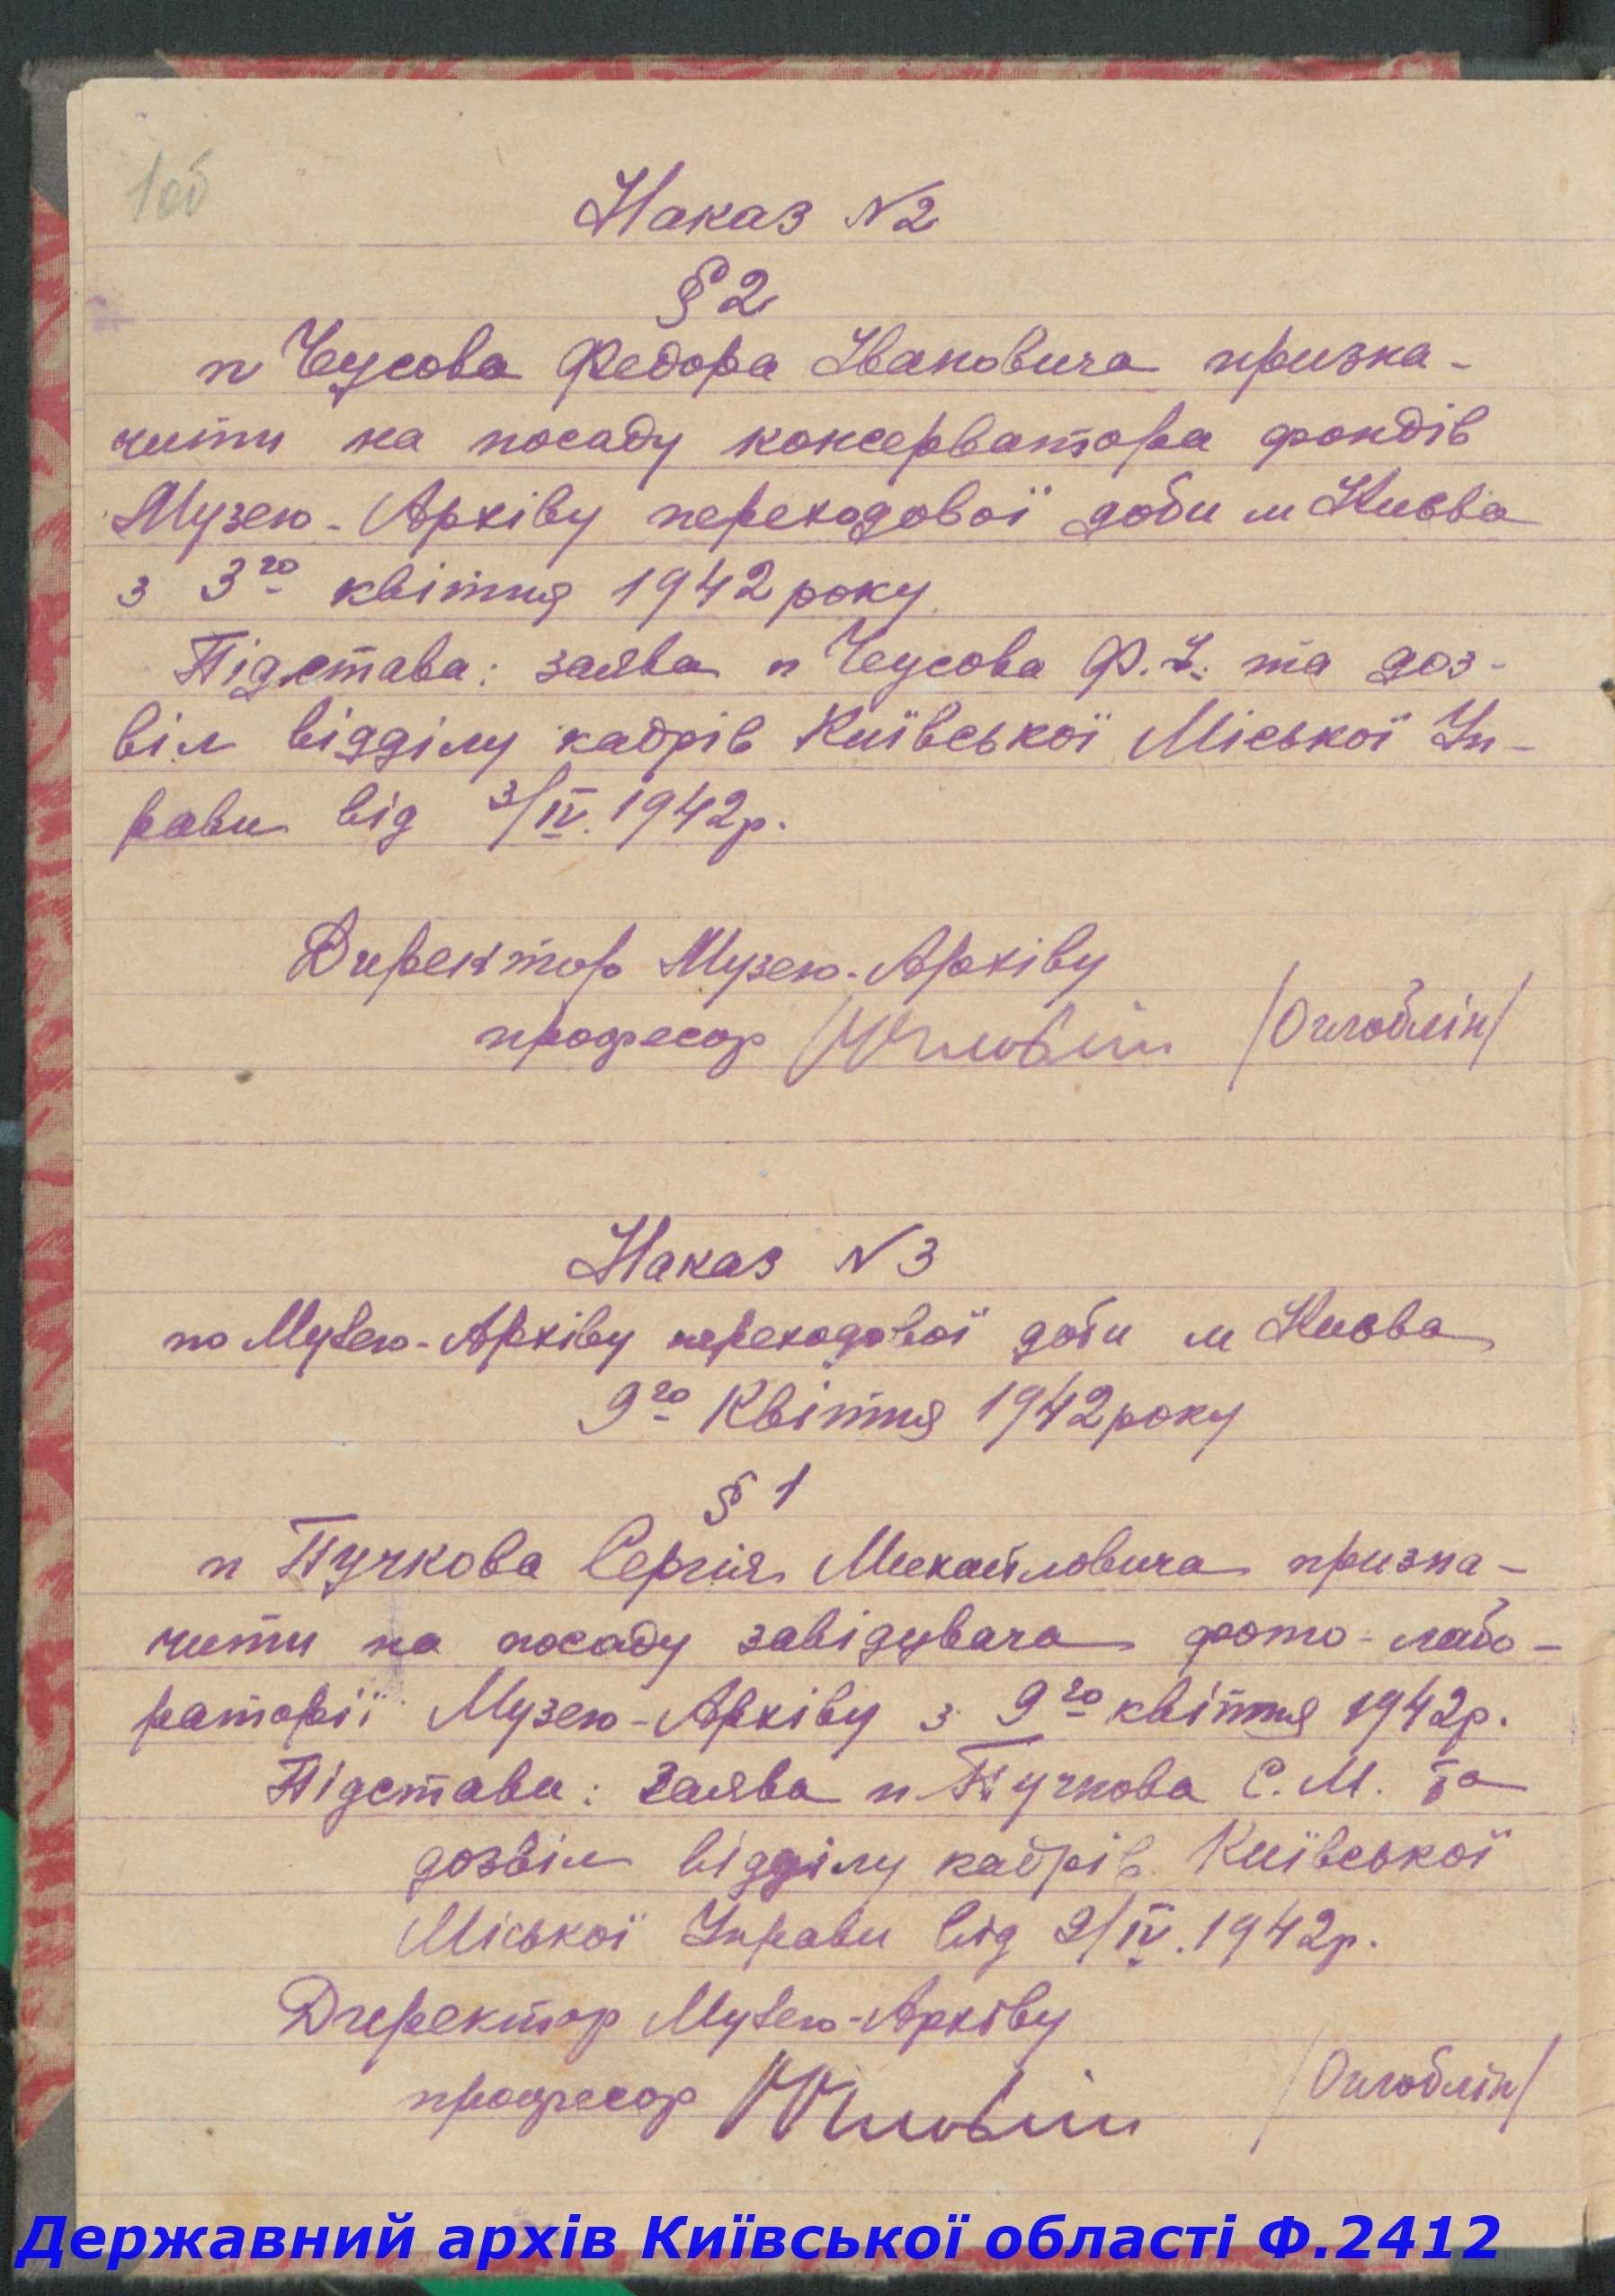 1об
Наказ N2
§ 2
п Чусова Федора Івановича призна-
чити на посаду консерватора фондів
Музею-Архіву переходової доби м Києва
з 3го квітня 1942 року.
Підстава: заява п Чусова Ф.І. та доз-
віл відділу кадрів Київської Міської Уп-
рави від 3/IV.1942р.
Директор Музею-Архіву
професор /Оглоблін/
Наказ N3
по Музею-Архіву переходової доби м Києва
9го Квітня 1942 року
§ 1
п Пучкова Сергія Михайловича призна-
чити на посаду завідувача фото-лабо-
раторії Музею-Архіву з 9го квітня 1942р.
Підстава: Заява п Пучкова С.М. та
дозвіл відділу кадрів Київської
Міської Управи від 9/IV.1942р.
Директор Музею-Архіву
професор /Оглоблін/
Державний архів Київської області Ф.2412